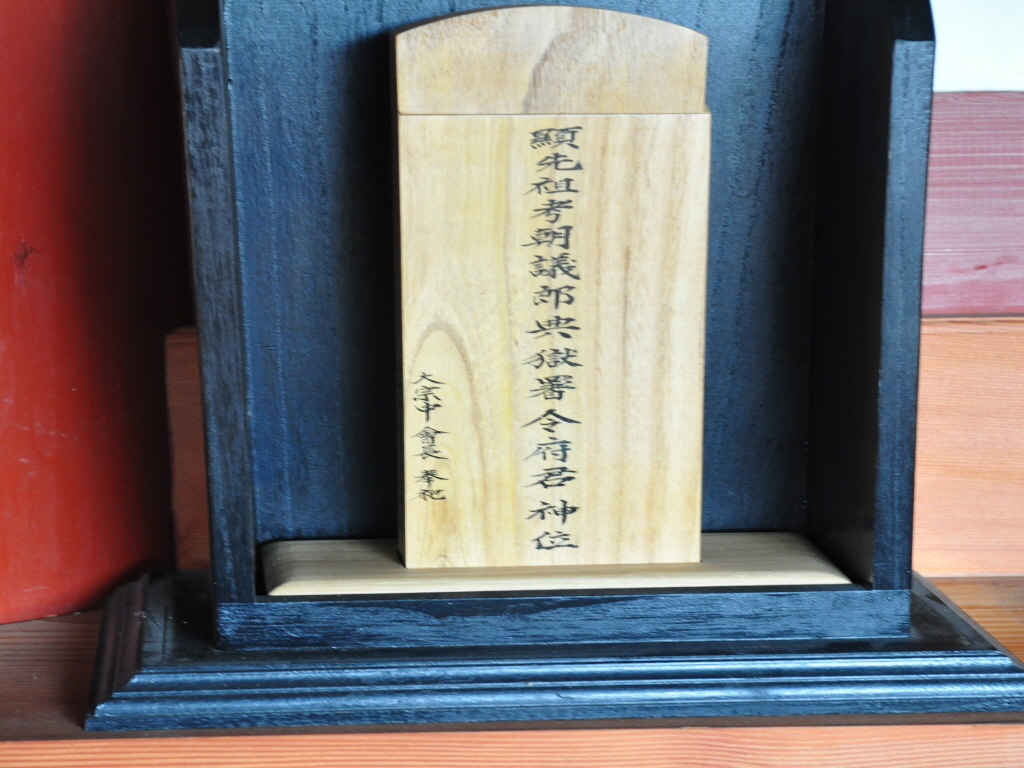 顯先祖考朝議郎典獄署令府君神位
大宗中會長奉祀